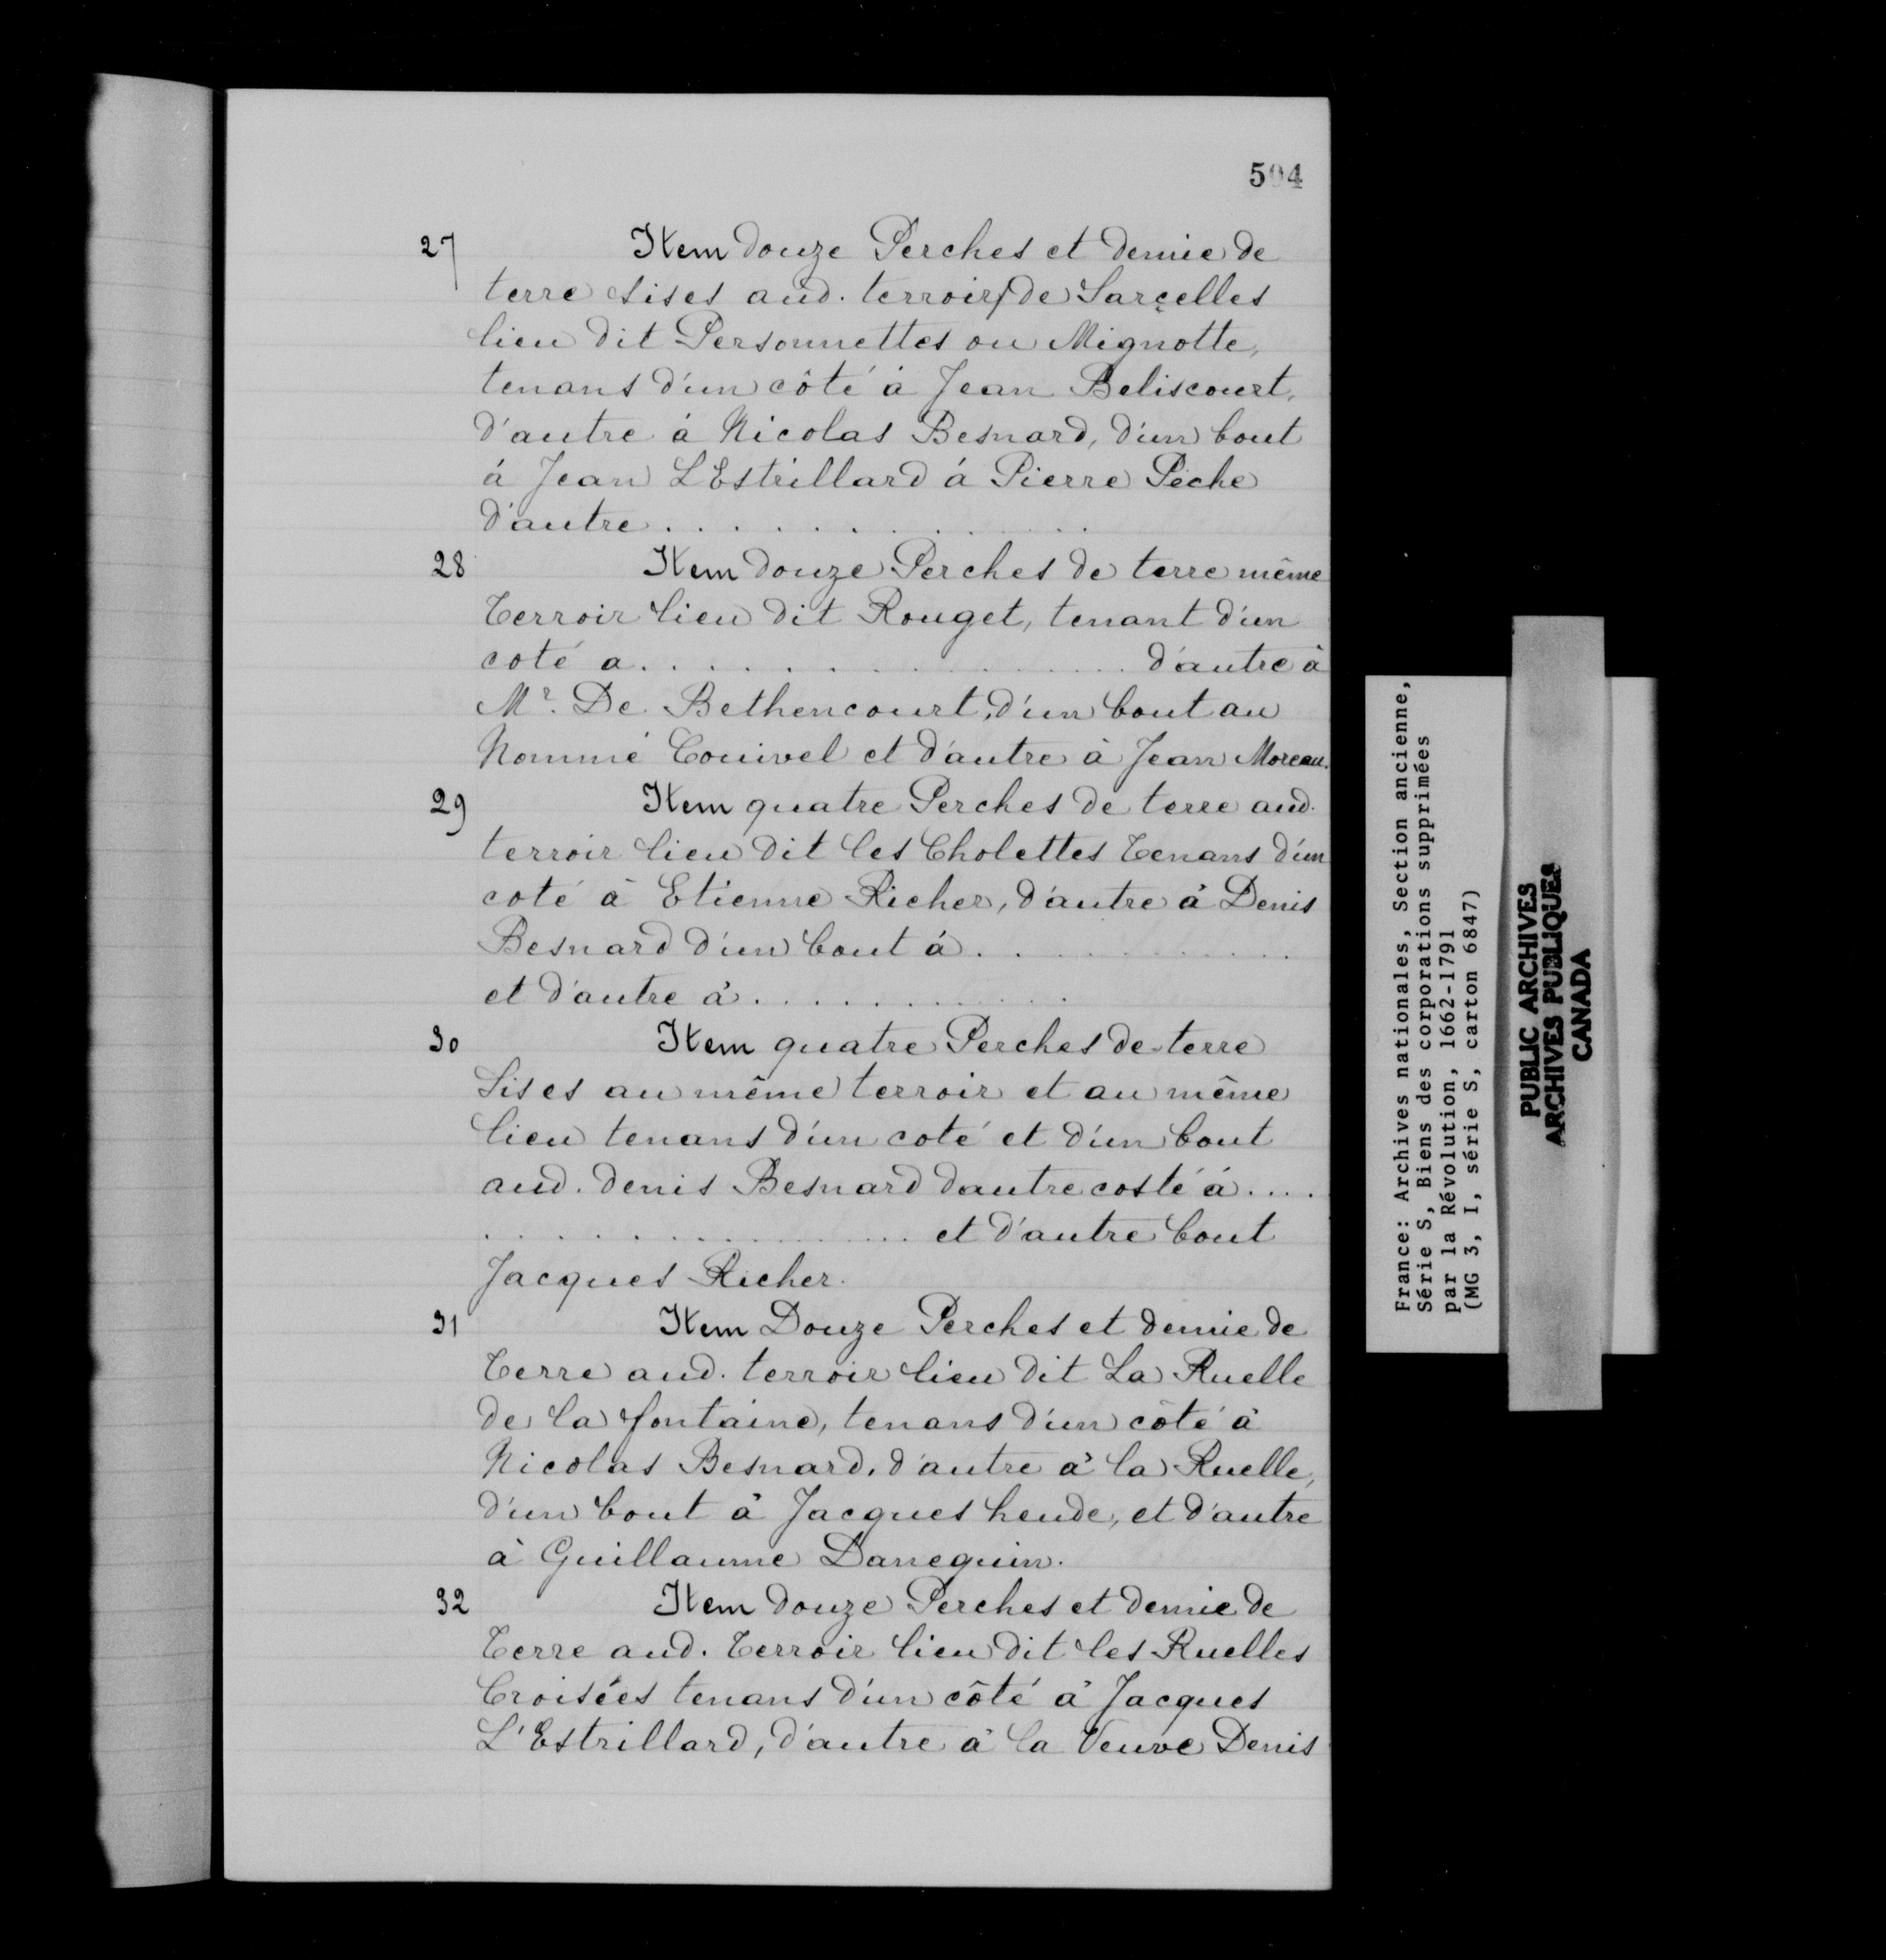 504
27 Item douze Perches et demie de
terre sises aud. terroir de Sarçelles
lieu dit Personnettes ou Mignotte,
tenans d'un côté à Jean Beliscourt,
d'autre à Nicolas Besnard, d'un bout
à Jean L'Estrillard à Pierre Peche
d'autre . . . . . . . . . . . .
28 Item douze Perches de terre même
Terroir lieu dit Rouget, tenant d'un
coté a . . . . . . . . . . . . d'autre à
Mr. De Bethencourt, d'un bout au
Nommé Couivel et d'autre à Jean Moreau.
29 Item quatre Perches de terre aud.
terroir lieu dit les Cholettes Tenans d'un
coté à Etienne Richer, d'autre à Denis
Besnard d'un bout à . . . . . . . . .
et d'autre à . . . . . . . . .
30 Item quatre Perches de terre
Sises au même terroir et au même
lieu tenans d'un coté et d'un bout
aud. denis Besnard dautre costé à ....
. . . . . . . . . . . . et d'autre bout
Jacques Richer.
31 Item Douze Perches et demie de
Terre aud. terroir lieu dit La Ruelle
de la fontaine, tenans d'un côté à
Nicolas Besnard, d'autre à la Ruelle,
d'un bout à Jacques heude, et d'autre
à Guillaume Danequin.
32 Item douze Perches et demie de
Terre aud. Terroir lieu dit les Ruelles
Croisées tenans d'un côté à Jacques
L'Estrillard, d'autre à la Veuve Denis
France: Archives nationales, Section ancienne,
Série S, Biens des corporations supprimées
par la Révolution, 1662-1791
(MG 3, I, série S, carton 6847)
PUBLIC ARCHIVES
ARCHIVES PUBLIQUES
CANADA